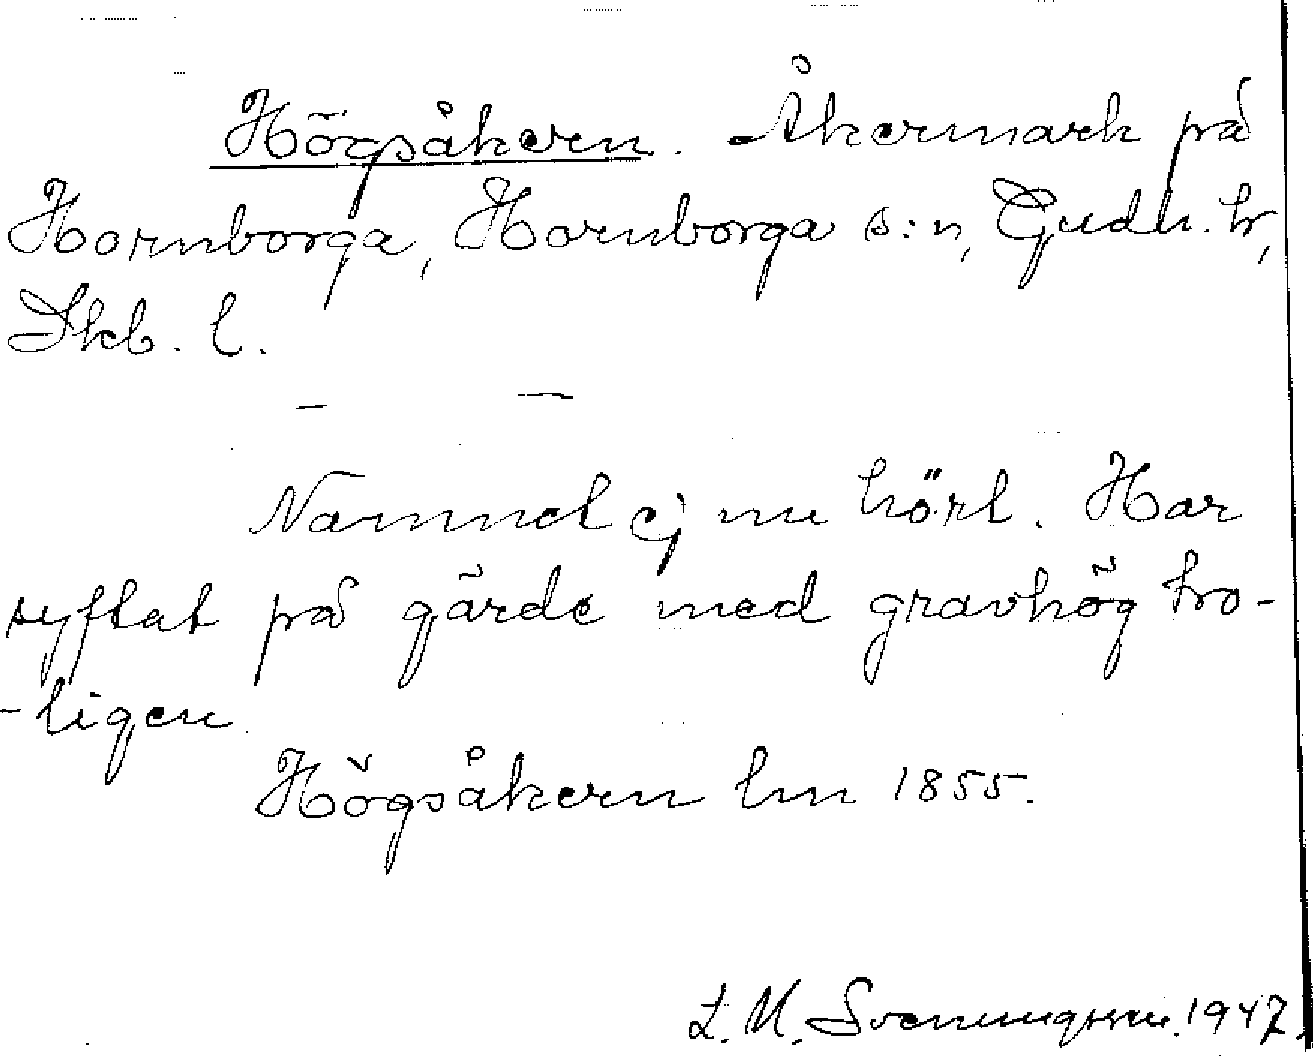 Högsåkern. Åkermark på
Hornborga, Hornborga s:n, Gudh. hr,
Skb. l.
— —
Namnet ej nu hört. Har
syftat på gärde med gravhög tro-
-ligen.
Högsåkern lm 1855.
L. M. Svenungsson. 1947.